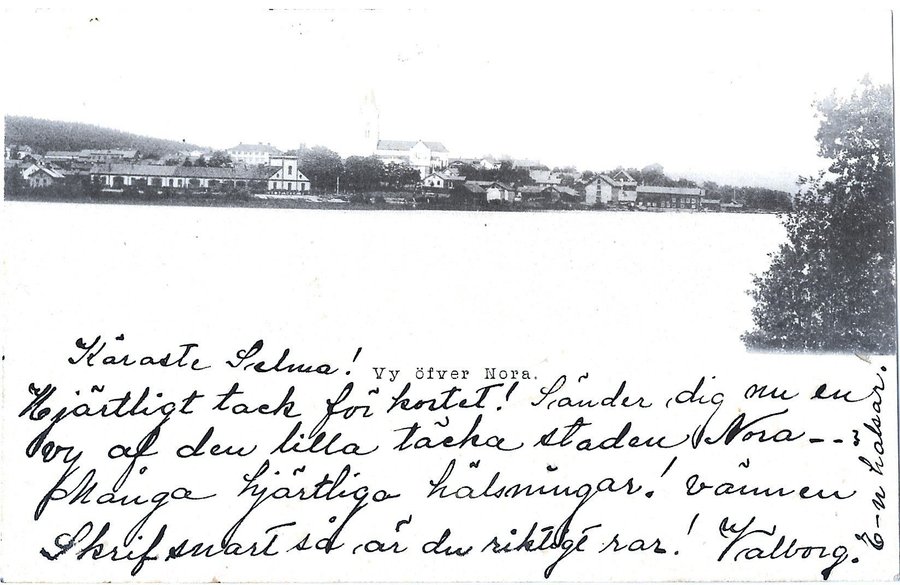 Käraste Selma!
Vy öfver Nora.
Hjärtligt tack för kortet! Sänder dig nu en
vy af den lilla täcka staden Nora --
Många hjärtliga hälsningar! vännen
Skrif snart så är du riktigt rar! Valborg.
E-n hälsar.